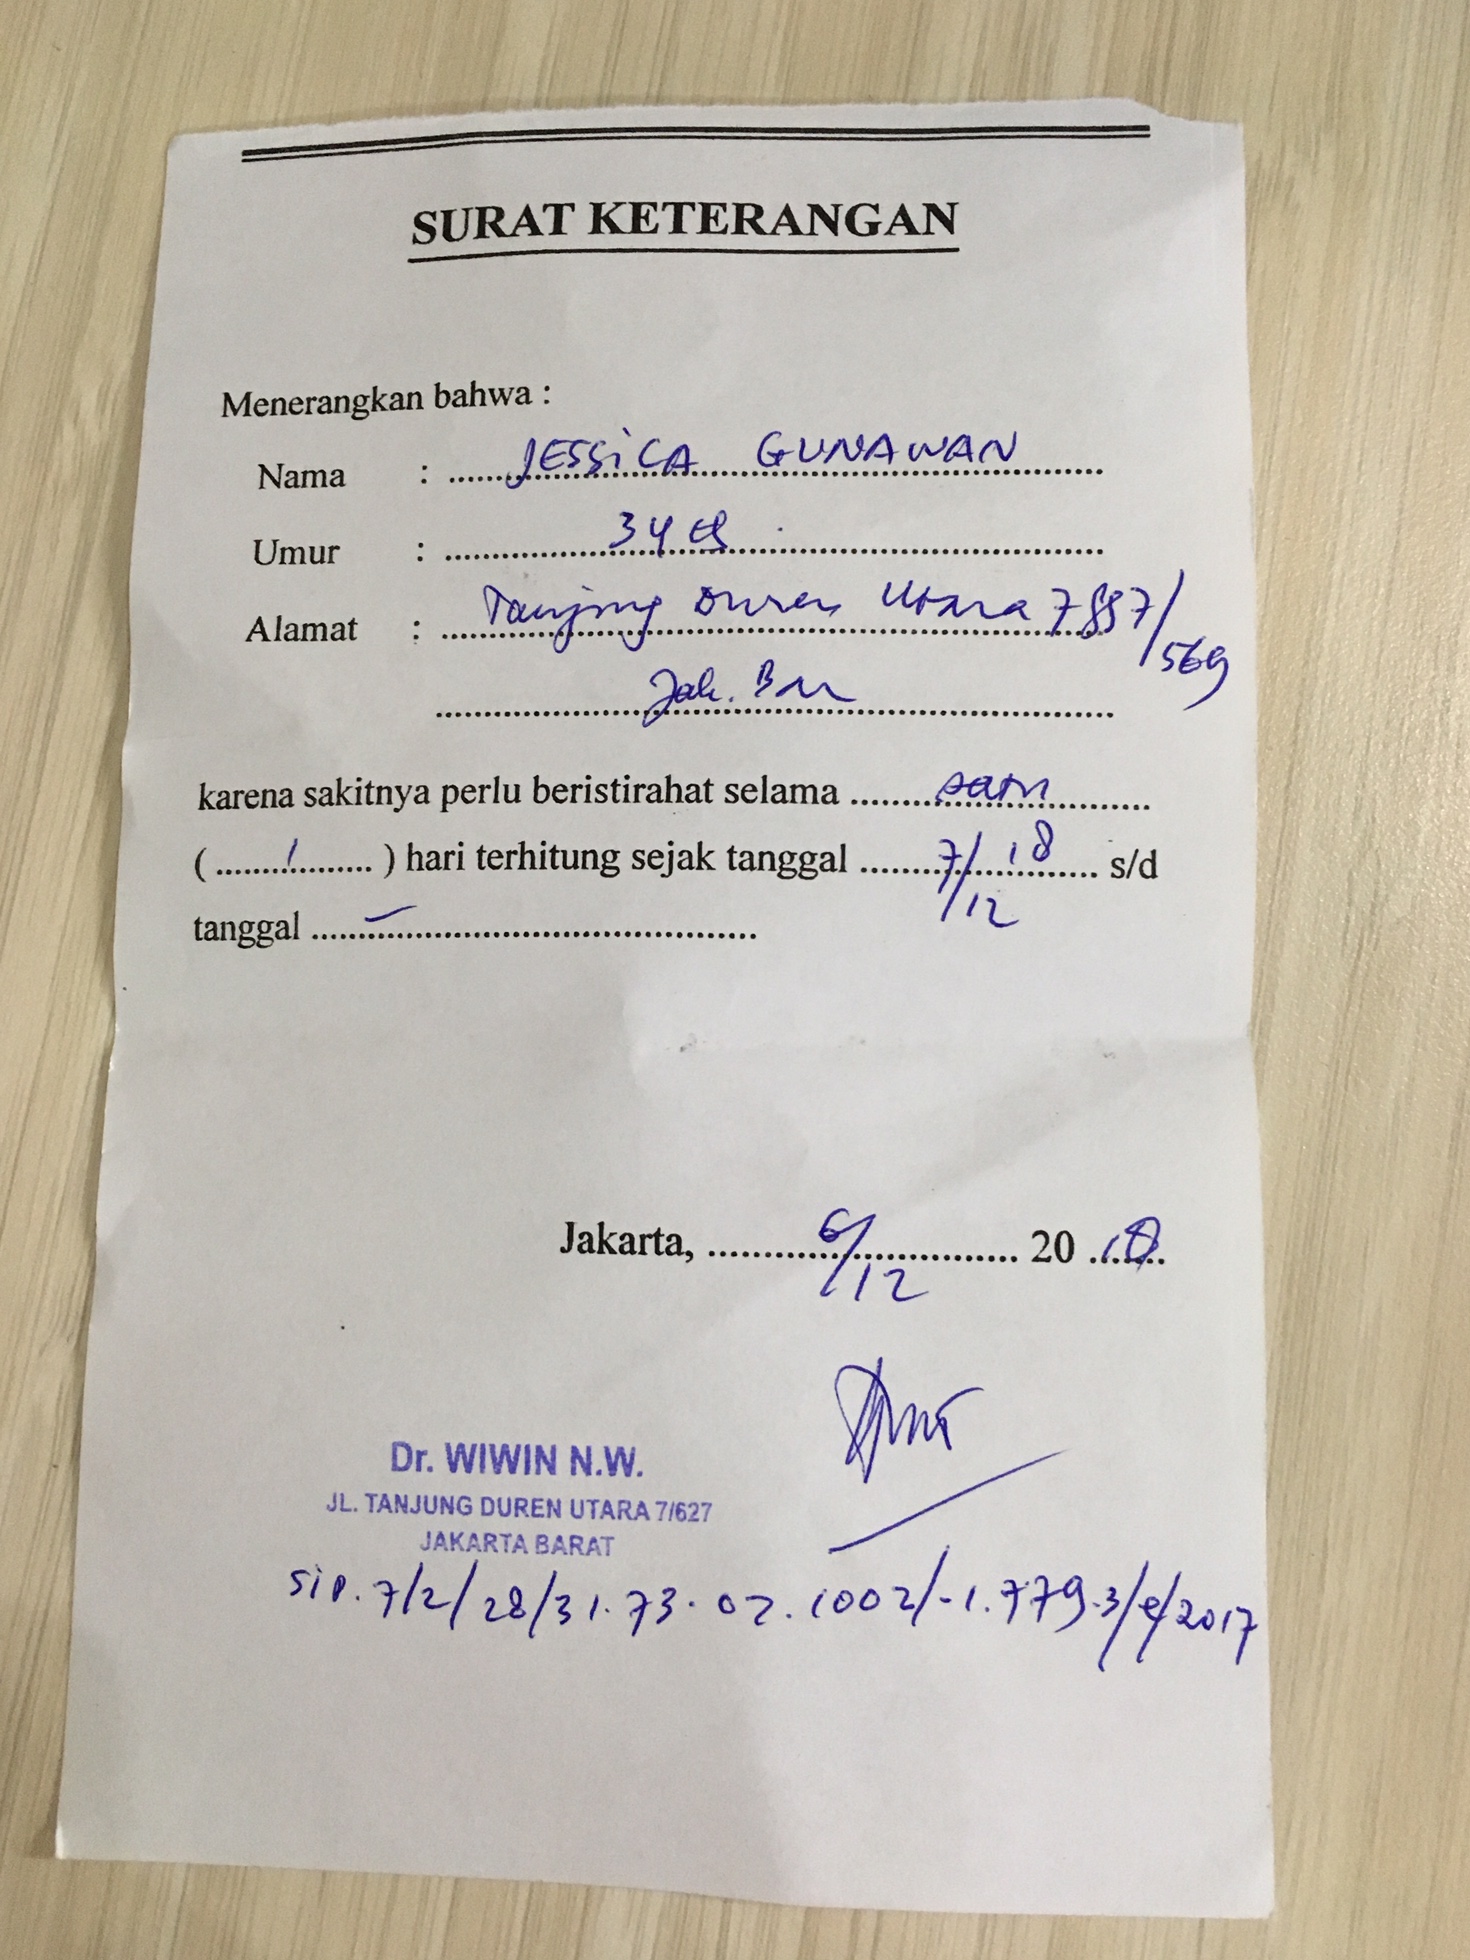 SURAT KETERANGAN
Menerangkan bahwa :
Nama : JESSICA GUNAWAN
Umur : 34 th
Alamat : Tanjung Duren Utara 7
569
Jak. Bar
karena sakitnya perlu beristirahat selama satu
( 1 ) hari terhitung sejak tanggal 7/12 18 s/d
tanggal –
Jakarta, 6/12 20 18
Dr. WIWIN N.W.
JL. TANJUNG DUREN UTARA 7/627
JAKARTA BARAT
sip. 7/2/28/31.73.02.1002/-1.779.3/e/2017